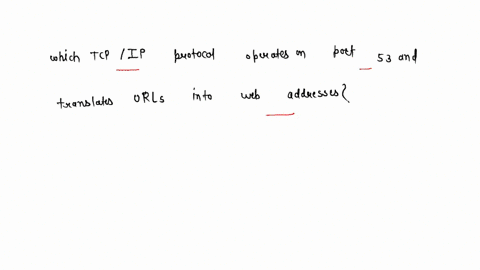 which TCP/IP protocol operates on port 53 and
translates URLs into web addresses?